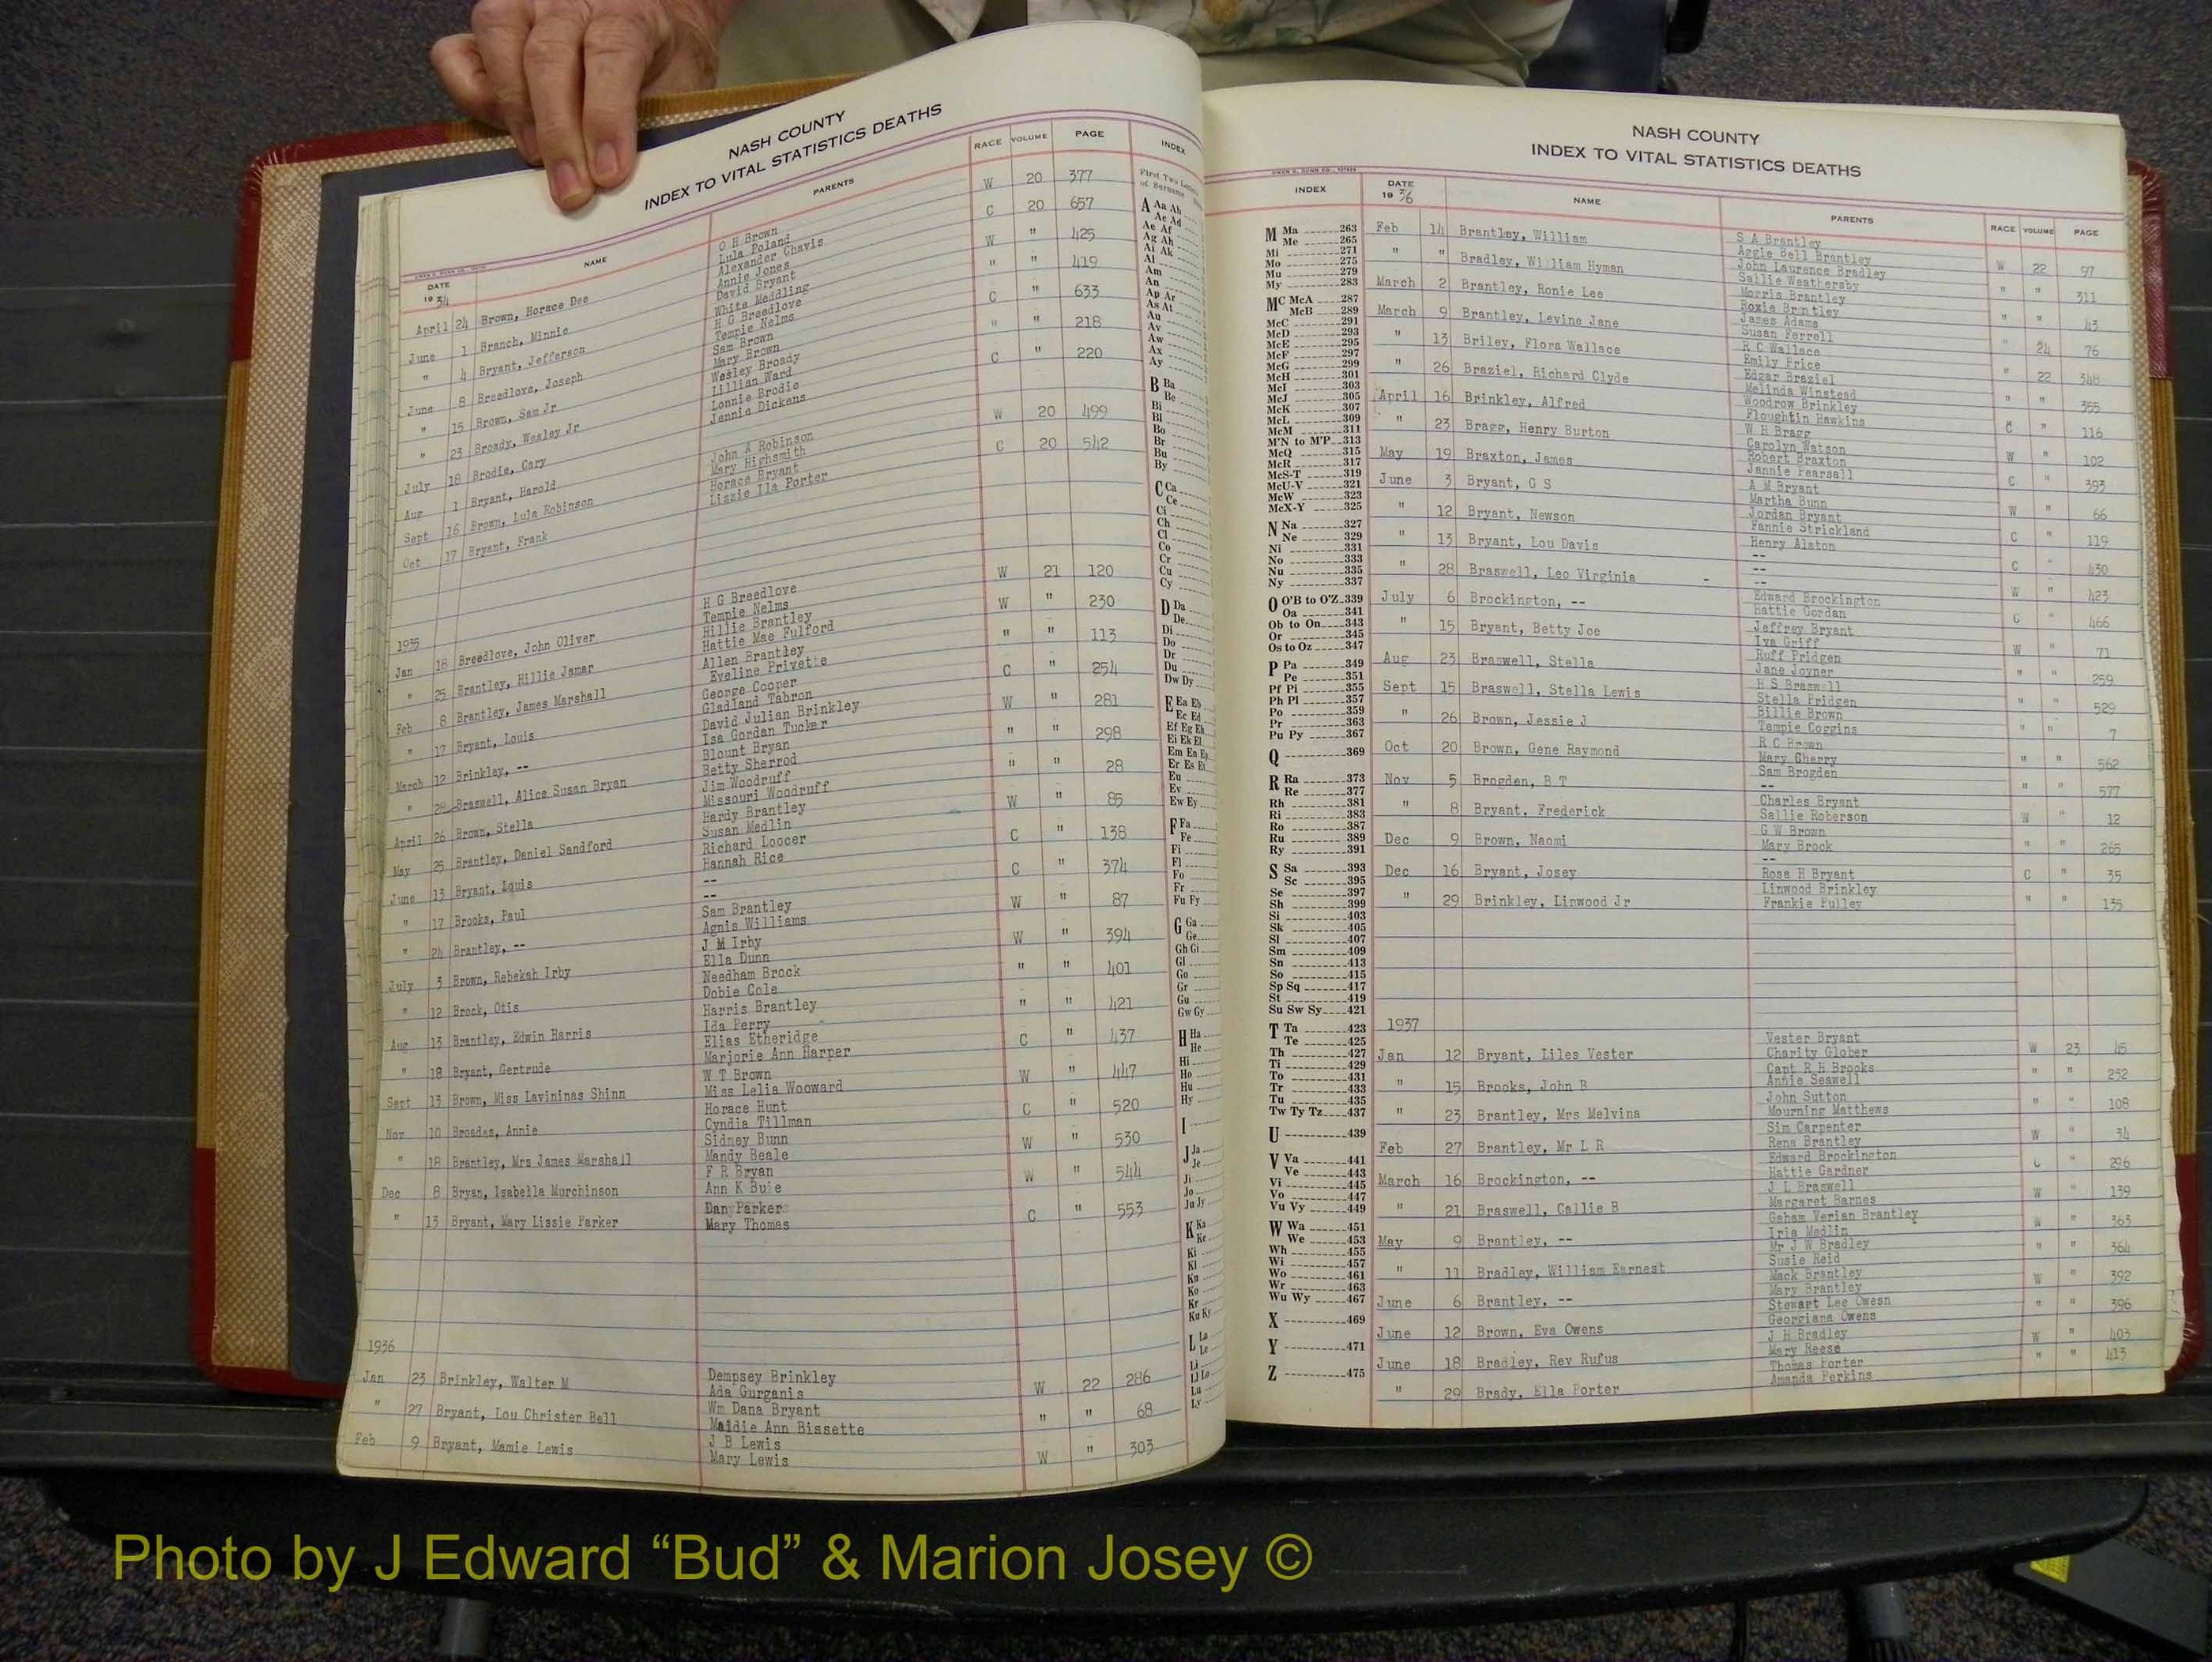 NASH COUNTY
INDEX TO VITAL STATISTICS DEATHS
DATE NAME PARENTS RACE VOLUME PAGE INDEX
1934
April 24 Brown, Horace Dee O H Brown W 20 377
Lula Poland
June 1 Branch, Minnie Alexander Chavis C 20 657
Annie Jones
" 4 Bryant, Jefferson David Bryant W " 425
White Meddling
June 8 Breedlove, Joseph H G Breedlove " " 419
Tempie Nelms
" 15 Brown, Sam Jr Sam Brown C " 633
Mary Brown
" 23 Broady, Wesley Jr Wesley Broady " " 218
Lillian Ward
July 18 Brodie, Cary Lonnie Brodie C " 220
Jennie Dickens
Aug 1 Bryant, Harold
Sept 16 Brown, Lula Robinson John A Robinson W 20 499
Mary Highsmith
Oct 17 Bryant, Frank Horace Bryant C 20 542
Lizzie Ila Porter
1935
Jan 18 Breedlove, John Oliver H G Breedlove W 21 120
Tempie Nelms
" 25 Brantley, Hillie Jamar Hillie Brantley W " 230
Hattie Mae Fulford
Feb 8 Brantley, James Marshall Allen Brantley " " 113
Eveline Privette
" 17 Bryant, Louis George Cooper C " 254
Gladland Tabron
March 12 Brinkley, -- David Julian Brinkley W " 281
Isa Gordan Tucker
" 28 Braswell, Alice Susan Bryan Blount Bryan " " 298
Betty Sherrod
April 26 Brown, Stella Jim Woodruff " " 28
Missouri Woodruff
May 25 Brantley, Daniel Sandford Hardy Brantley W " 85
Susan Medlin
June 13 Bryant, Louis Richard Loocer C " 138
Hannah Rice
" 17 Brooks, Paul -- C " 374
--
" 24 Brantley, -- Sam Brantley W " 87
Agnis Williams
July 3 Brown, Rebekah Irby J M Irby W " 394
Ella Dunn
" 12 Brock, Otis Needham Brock " " 401
Dobie Cole
Aug 13 Brantley, Edwin Harris Harris Brantley " " 421
Ida Perry
" 18 Bryant, Gertrude Elias Etheridge C " 437
Marjorie Ann Harper
Sept 13 Brown, Miss Lavininas Shinn W T Brown W " 447
Miss Lelia Wooward
Nov 10 Broadas, Annie Horace Hunt C " 520
Cyndia Tillman
" 18 Brantley, Mrs James Marshall Sidney Bunn W " 530
Mandy Beale
Dec 8 Bryan, Isabella Murchinson F R Bryan W " 544
Ann K Buie
" 13 Bryant, Mary Lissie Parker Dan Parker C " 553
Mary Thomas
1936
Jan 23 Brinkley, Walter M Dempsey Brinkley W 22 286
Ada Gurganis
" 27 Bryant, Lou Christer Bell Wm Dana Bryant " " 68
Maidie Ann Bissette
Feb 9 Bryant, Mamie Lewis J B Lewis W " 303
Mary Lewis
First Two Letters
of Surname
A Aa Ab
Ae Ad
Ae Af
Ag Ah
Ai Ak
Al
Am
An
Ap Ar
As At
Au
Av
Aw
Ax
Ay
B Ba
Be
Bi
Bl
Bo
Br
Bu
By
C Ca
Ce
Ci
Ch
Cl
Co
Cr
Cu
Cy
D Da
De
Di
Do
Dr
Du
Dw Dy
E Ea Eb
Ec Ed
Ef Eg Eh
Ei Ek El
Em En Ep
Er Es Et
Eu
Ev
Ew Ey
F Fa
Fe
Fi
Fl
Fo
Fr
Fu Fy
G Ga
Ge
Gh Gi
Gl
Go
Gr
Gu
Gw Gy
H Ha
He
Hi
Ho
Hu
Hy
I
J Ja
Je
Ji
Jo
Ju Jy
K Ka
Ke
Ki
Kl
Kn
Ko
Kr
Ku Ky
L La
Le
Li
Ll Lo
Lu
Ly
NASH COUNTY
INDEX TO VITAL STATISTICS DEATHS
INDEX DATE NAME PARENTS RACE VOLUME PAGE
1936
M Ma 263
Me 265
Mi 271
Mo 275
Mu 279
My 283
MC McA 287
McB 289
McC 291
McD 293
McE 295
McF 297
McG 299
McH 301
McI 303
McJ 305
McK 307
McL 309
McM 311
M'N to M'P 313
McQ 315
McR 317
McS-T 319
McU-V 321
McW 323
McX-Y 325
N Na 327
Ne 329
Ni 331
No 333
Nu 335
Ny 337
O O'B to O'Z 339
Oa 341
Ob to On 343
Or 345
Os to Oz 347
P Pa 349
Pe 351
Pf Pi 355
Ph Pl 357
Po 359
Pr 363
Pu Py 367
Q 369
R Ra 373
Re 377
Rh 381
Ri 383
Ro 387
Ru 389
Ry 391
S Sa 393
Sc 395
Se 397
Sh 399
Si 403
Sk 405
Sl 407
Sm 409
Sn 413
So 415
Sp Sq 417
St 419
Su Sw Sy 421
T Ta 423
Te 425
Th 427
Ti 429
To 431
Tr 433
Tu 435
Tw Ty Tz 437
U 439
V Va 441
Ve 443
Vi 445
Vo 447
Vu Vy 449
W Wa 451
We 453
Wh 455
Wi 457
Wo 461
Wr 463
Wu Wy 467
X 469
Y 471
Z 475
Feb 14 Brantley, William S A Brantley W 22 97
Aggie Bell Brantley
" " Bradley, William Hyman John Laurence Bradley " " 311
Sallie Weathersby
March 2 Brantley, Ronie Lee Morris Brantley " " 43
Roxie Brantley
March 9 Brantley, Levine Jane James Adams " 24 76
Susan Ferrell
" 13 Briley, Flora Wallace R C Wallace " 22 348
Emily Price
" 26 Braziel, Richard Clyde Edgar Braziel " " 355
Melinda Winstead
April 16 Brinkley, Alfred Woodrow Brinkley C " 116
Floughtin Hawkins
" 23 Bragg, Henry Burton W H Bragg W " 102
Carolyn Watson
May 19 Braxton, James Robert Braxton C " 393
Jannie Pearsall
June 3 Bryant, G S A M Bryant W " 66
Martha Bunn
" 12 Bryant, Newson Jordan Bryant C " 119
Fannie Strickland
" 13 Bryant, Lou Davis Henry Alston C " 430
--
" 28 Braswell, Leo Virginia -- W " 423
--
July 6 Brockington, -- Edward Brockington C " 466
Hattie Gordan
" 15 Bryant, Betty Joe Jeffrey Bryant W " 71
Iva Griff
Aug 23 Braswell, Stella Ruff Pridgen " " 259
Jane Joyner
Sept 15 Braswell, Stella Lewis R S Braswell " " 529
Stella Pridgen
" 26 Brown, Jessie J Billie Brown " " 7
Tempie Coggins
Oct 20 Brown, Gene Raymond R C Brown " " 562
Mary Cherry
Nov 5 Brogden, B T Sam Brogden " " 577
--
" 8 Bryant, Frederick Charles Bryant W " 12
Sallie Roberson
Dec 9 Brown, Naomi G W Brown " " 265
Mary Brock
Dec 16 Bryant, Josey -- C " 35
Rosa H Bryant
" 29 Brinkley, Linwood Jr Linwood Brinkley " " 135
Frankie Pulley
1937
Jan 12 Bryant, Liles Vester Vester Bryant W 23 45
Charity Glober
" 15 Brooks, John B Capt R H Brooks " " 232
Annie Seawell
" 23 Brantley, Mrs Melvina John Sutton " " 108
Mourning Matthews
Feb 27 Brantley, Mr L R Sim Carpenter W " 34
Rena Brantley
March 16 Brockington, -- Edward Brockington C " 296
Hattie Gardner
" 21 Braswell, Callie B J L Braswell W " 139
Margaret Barnes
May 9 Brantley, -- Gaham Verian Brantley W " 363
Iris Medlin
" 11 Bradley, William Earnest Mr J W Bradley " " 364
Susie Reid
June 6 Brantley, -- Mack Brantley W " 392
Mary Brantley
June 12 Brown, Eva Owens Stewart Lee Owesn " " 396
Georgiana Owens
June 18 Bradley, Rev Rufus J H Bradley W " 403
Mary Reese
" 29 Brady, Ella Porter Thomas Porter " " 413
Amanda Perkins
Photo by J Edward “Bud” & Marion Josey ©